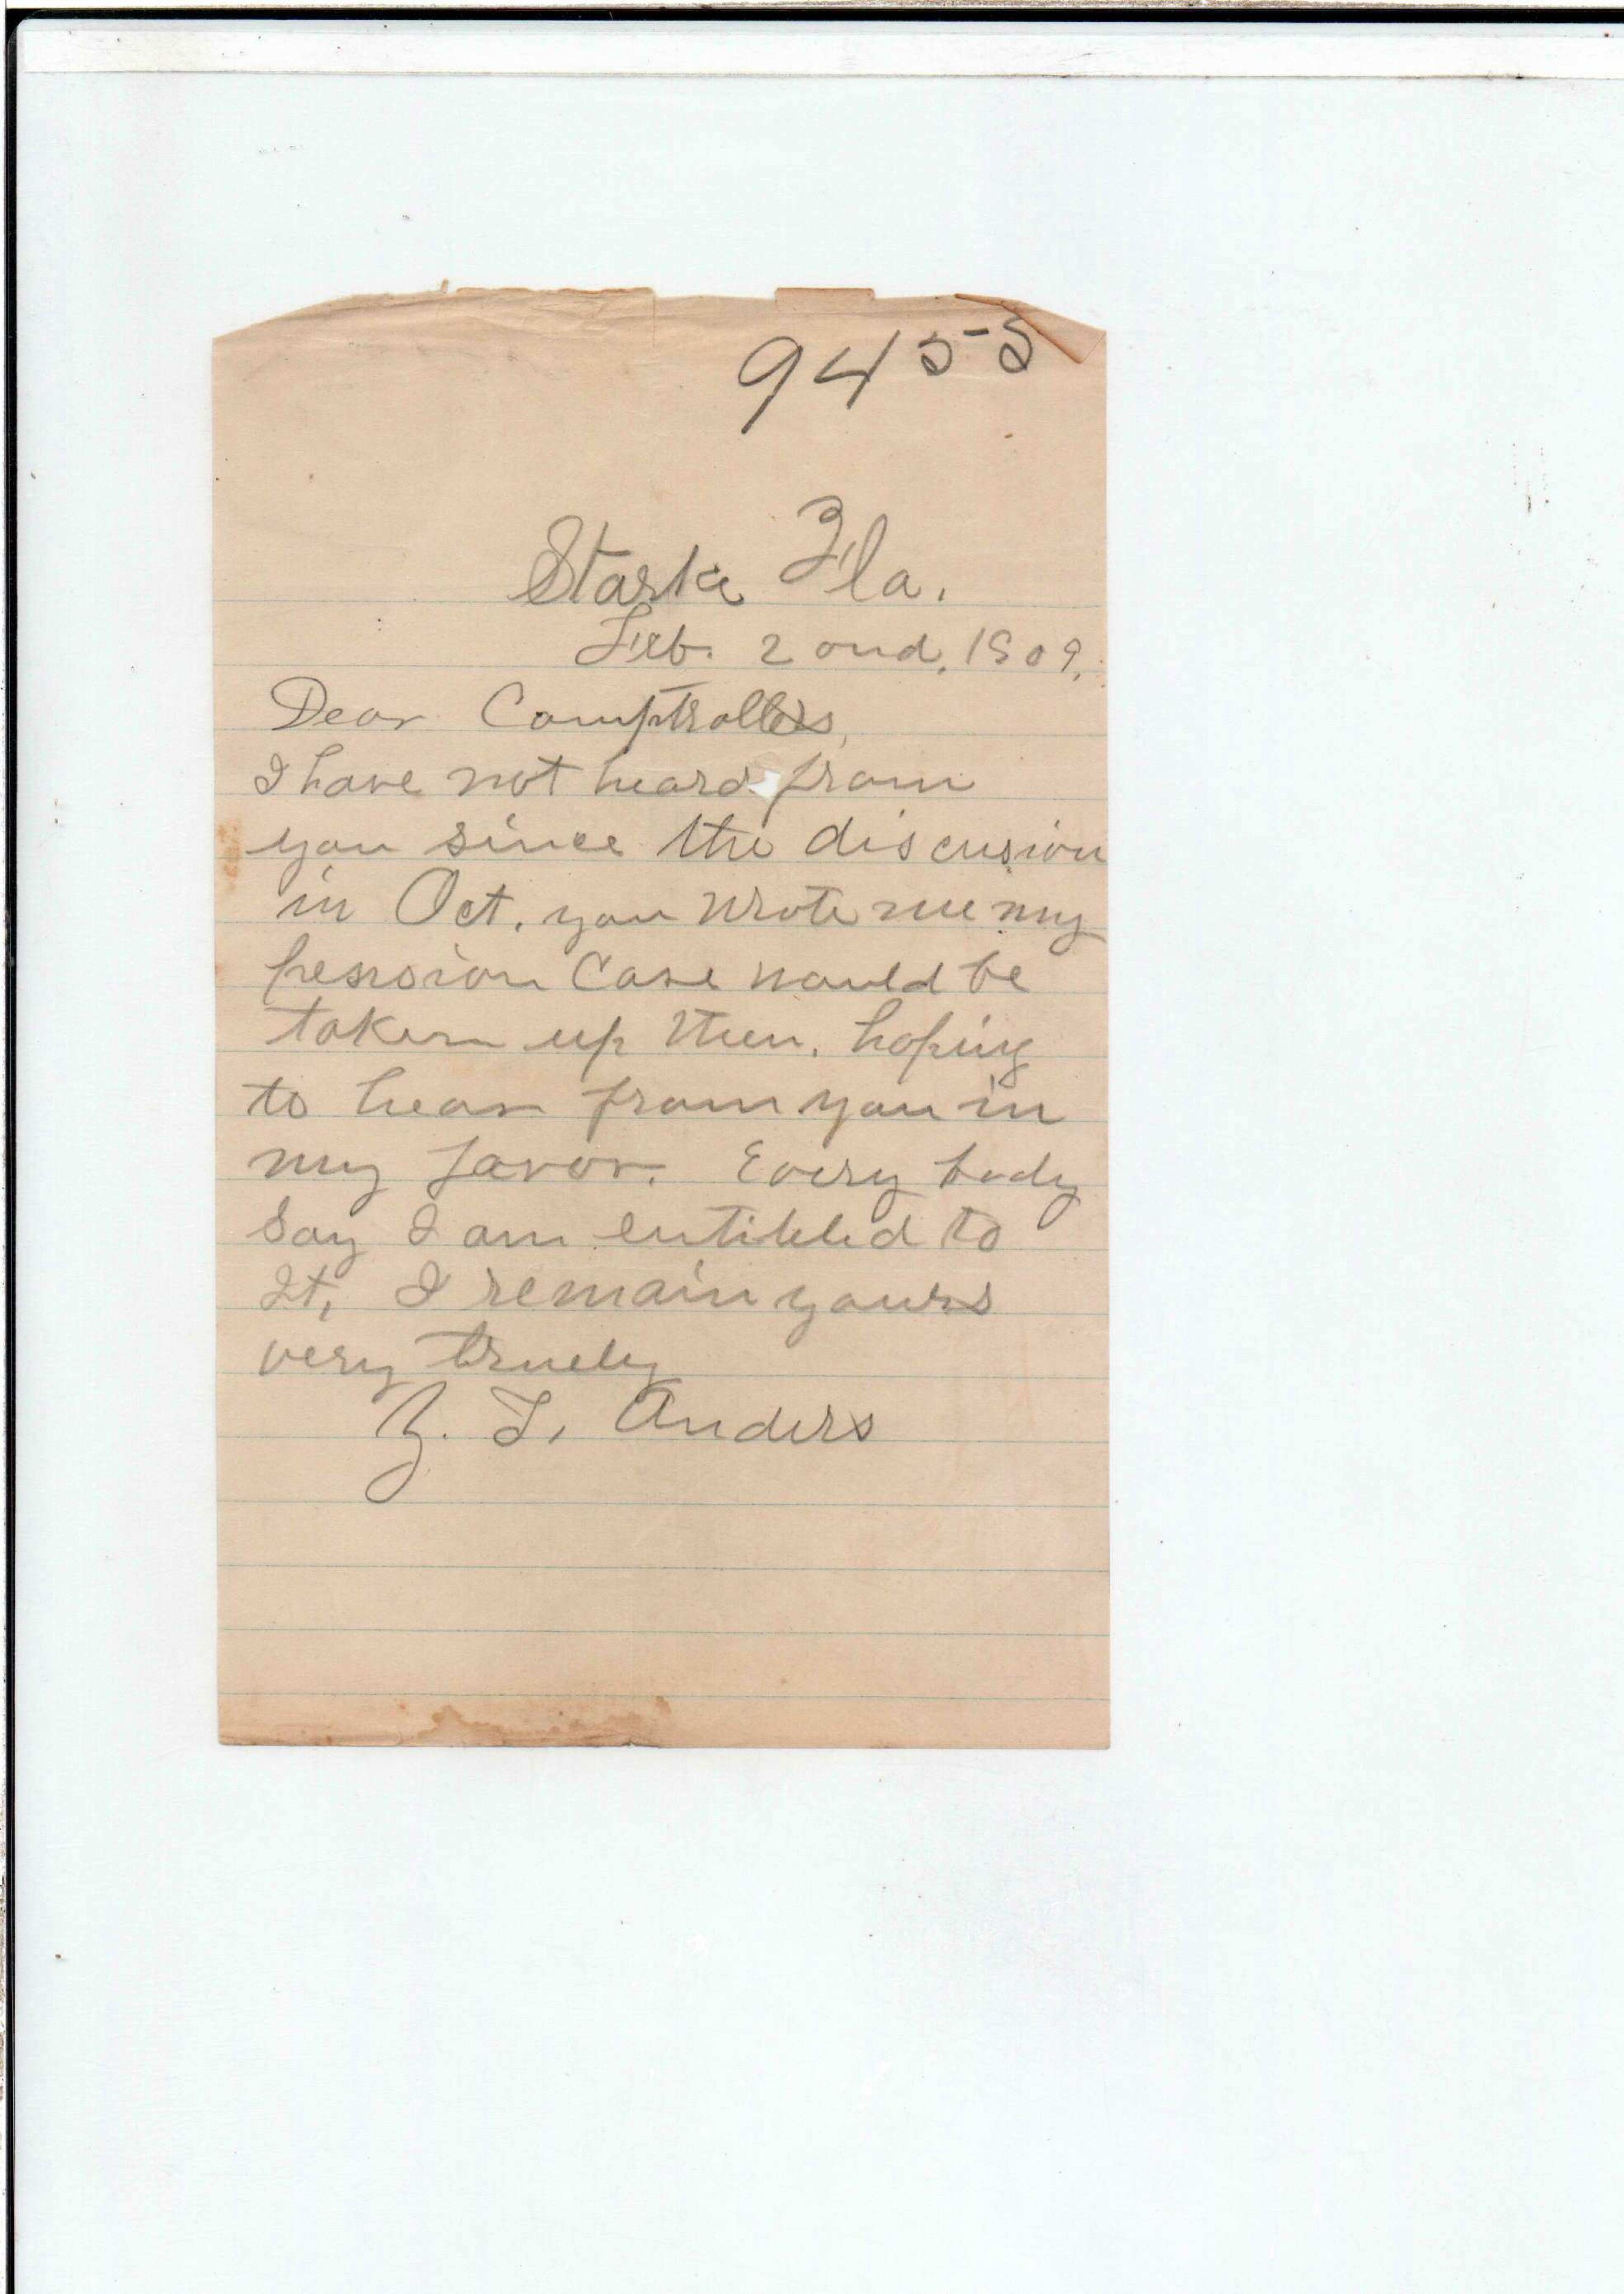 9455
Starke Fla.
Feb. 2 ond. 1909.
Dear Comptroller,
I have not heard from
you since the discusion
in Oct. you wrote me my
pension Case would be
taken up then. hoping
to hear from you in
my favor. Every body
Say I am entitled to
It, I remain yours
very truely
Z. T. Anders